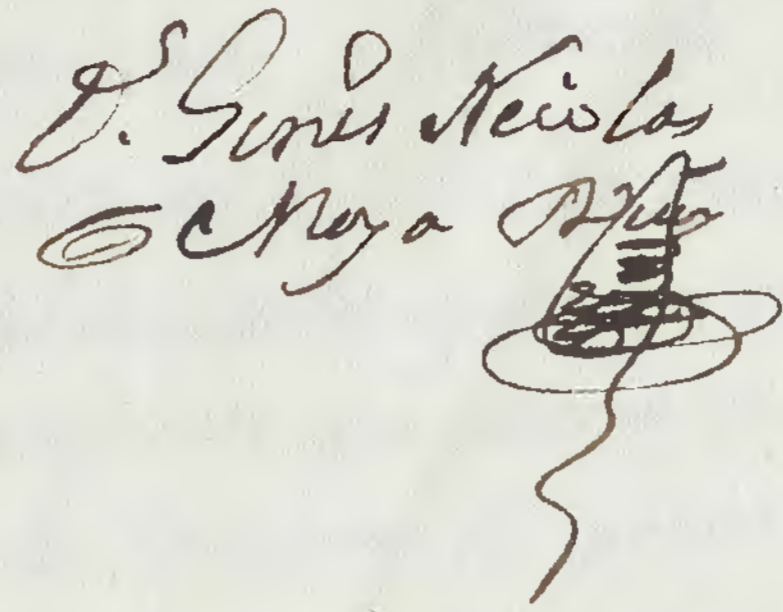 Dn. Gines Nicolas
Moya